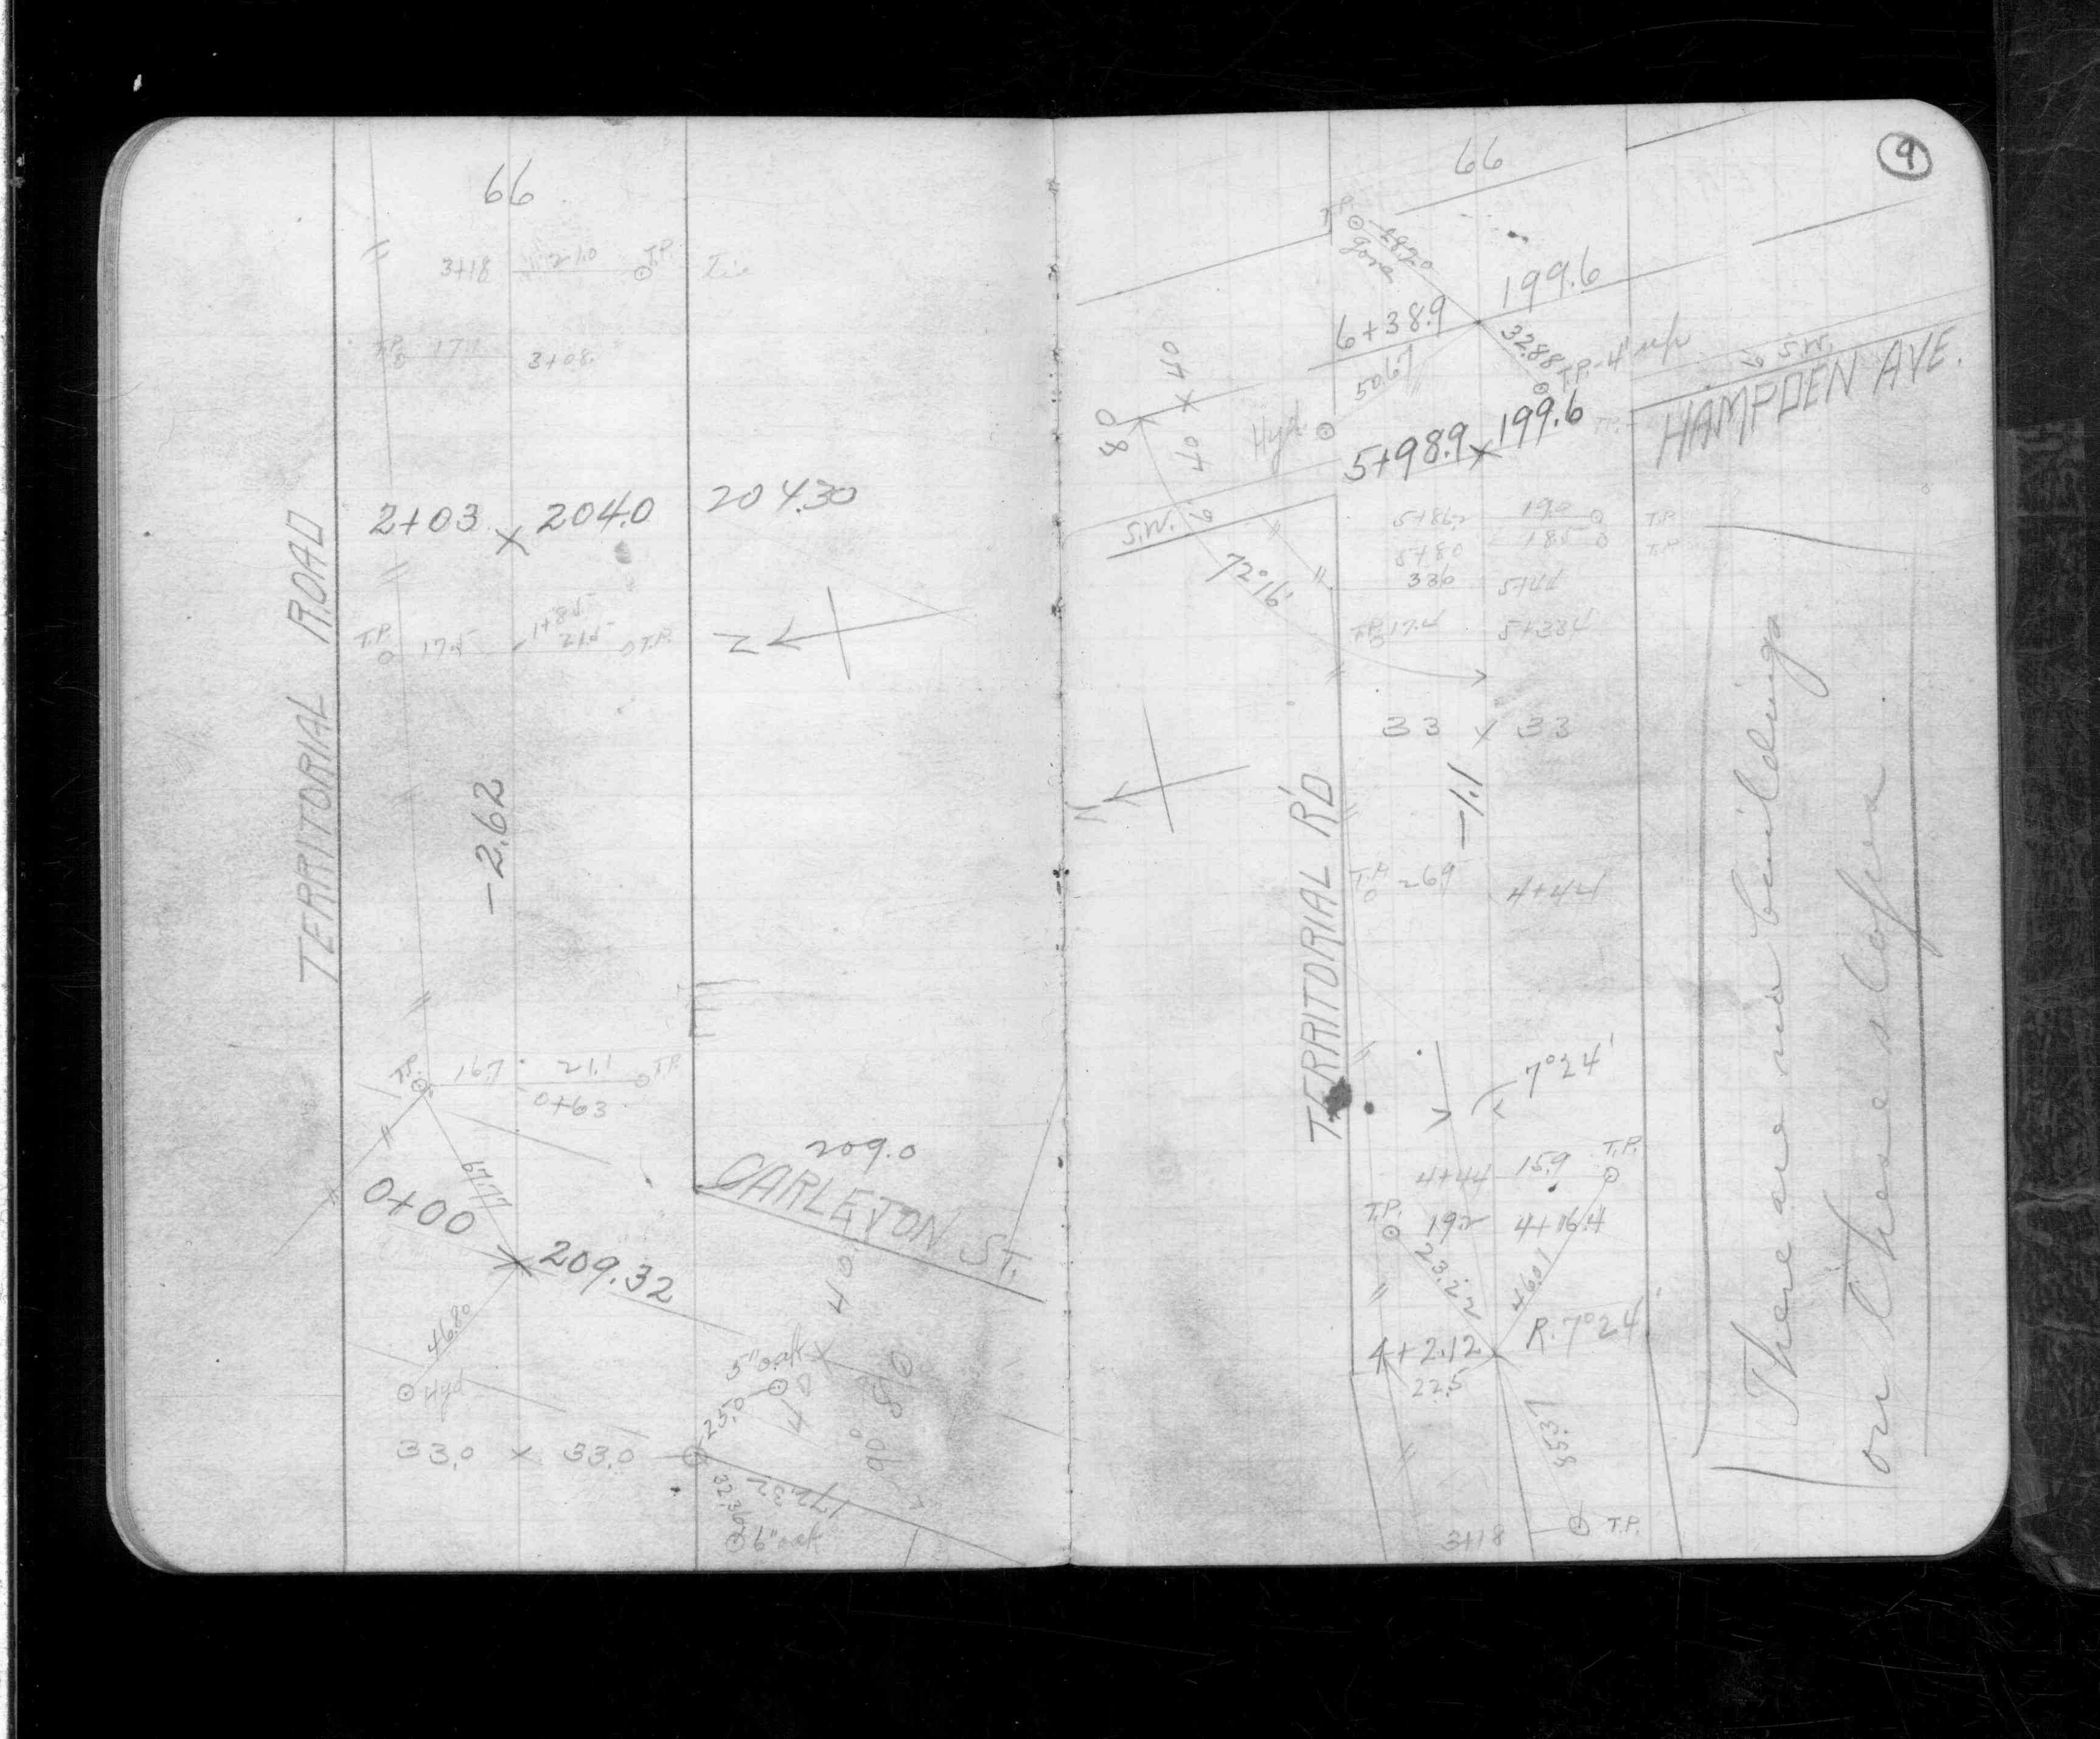 66
3+18 21.0 T.P.
T.P. 17.1 3+08.
2+03 x 204.0 204.30
TERRITORIAL ROAD
T.P. 17.5 1+85 21.5 T.P.
N
-2.62
T.P. 16.7 21.1 T.P.
0+63
209.0
CARLETON ST.
0+00
209.32
40
46.80
Hyd
5" oak
25.0
40
80
90°
33.0 x 33.0
172.32
32.36
6" oak
9
66
T.P.
Gone
199.6
6+38.9
32.88
T.P. - 4' up
50.67
6 S.W.
HAMPDEN AVE.
40 x 40
80
Hyd.
5+98.9 x 199.6
S.W. 6
72°16'
5+86.2 19.0 T.P.
5+80 18.5 T.P.
33.0 5+44
T.P. 17.4 5+33.4
33 x 33
N
-1.1
TERRITORIAL R'D
T.P. 26.9 4+44
7°24'
4+44 15.9 T.P.
T.P. 19.2 4+16.4
23.22
46.01
4+2.12 R. 7°24'
22.5
85.37
3+18 T.P.
There are no buildings
on these slopes